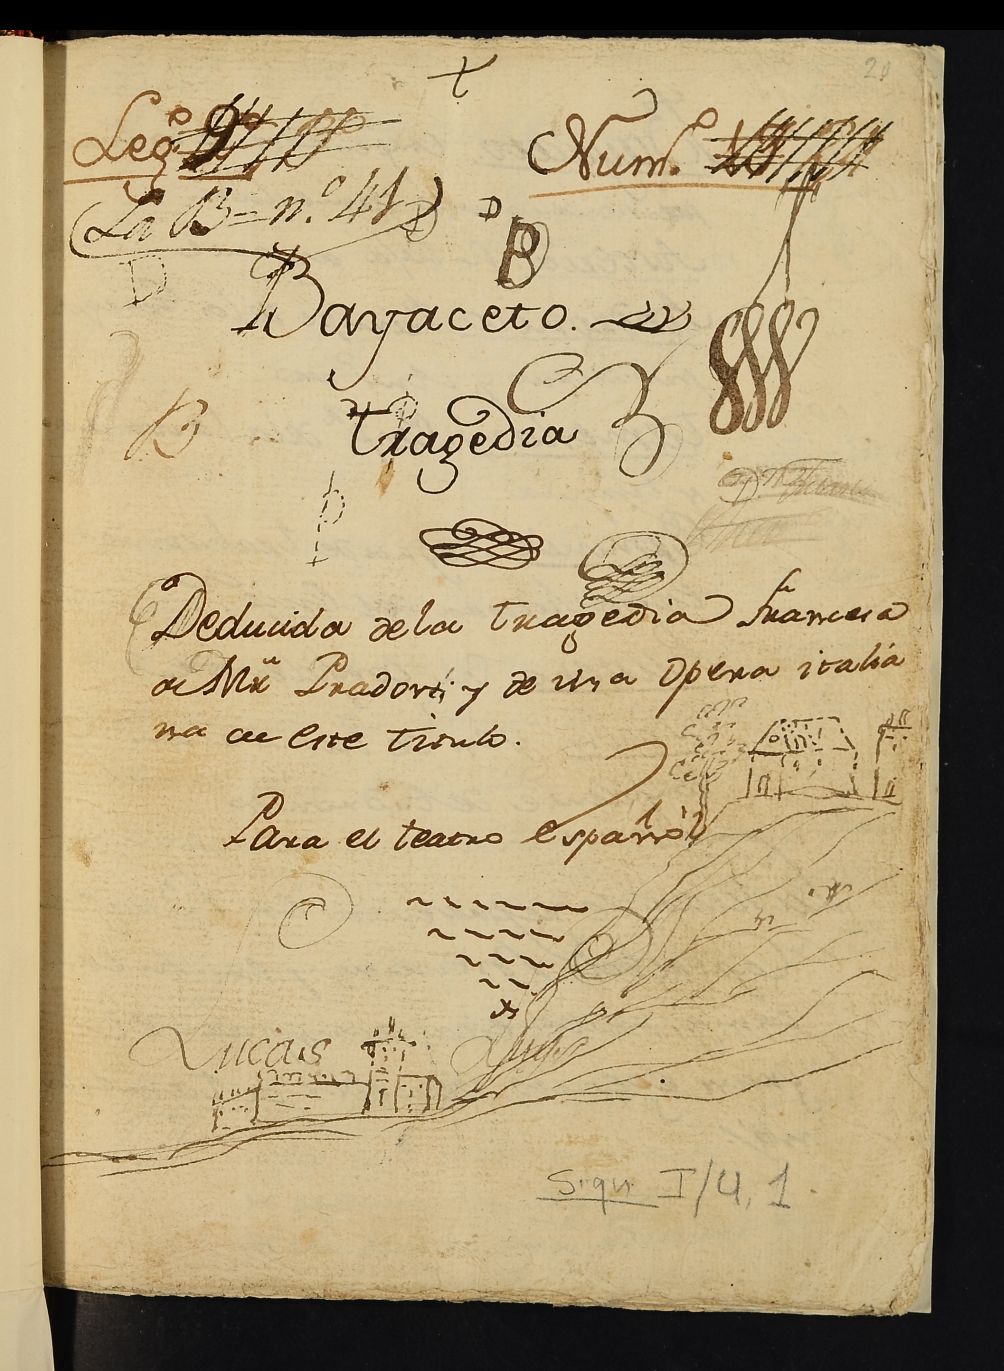 20
Leg.º 9
Num.º
La B = n.º 41
D
D
B
Bayaceto.
B
tragedia
Deducida de la tragedia francesa
de Mr Pradon; y de una opera italia
na de este titulo.
Para el teatro español
Lucas
Sign I/4, 1.